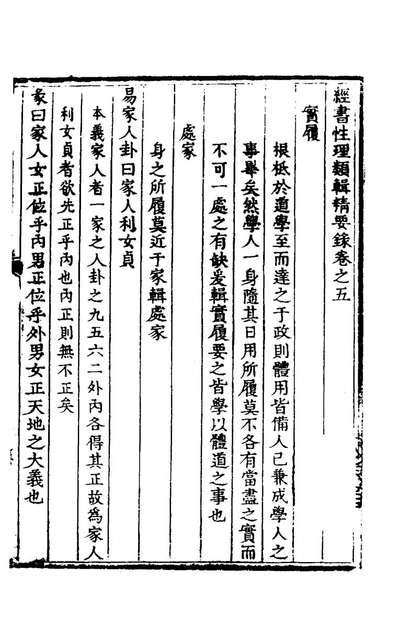 經書性理類輯精要錄卷之五
實履
根柢於道學至而達之于政則體用皆備人己兼成學人之
事畢矣然學人一身隨其日用所履莫不各有當盡之實而
不可一處之有缺爰輯實履要之皆學以體道之事也
處家
身之所履莫近于家輯處家
易家人卦曰家人利女貞
本義家人者一家之人卦之九五六二外內各得其正故為家人
利女貞者欲先正乎內也內正則無不正矣
彖曰家人女正位乎內男正位乎外男女正天地之大義也